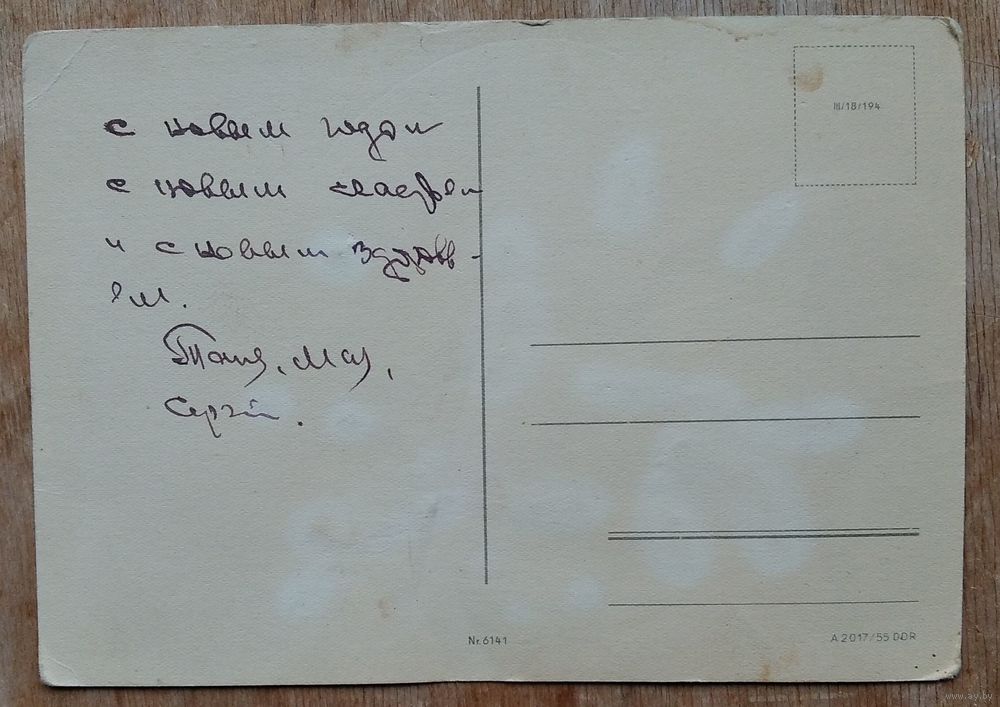 с новым годом
с новым счастьем
и с новым здоровь-
ем.
Таня, Мая,
Сергей.
III/18/194
Nr. 6141
A 2017/55 DDR
www.ay.by